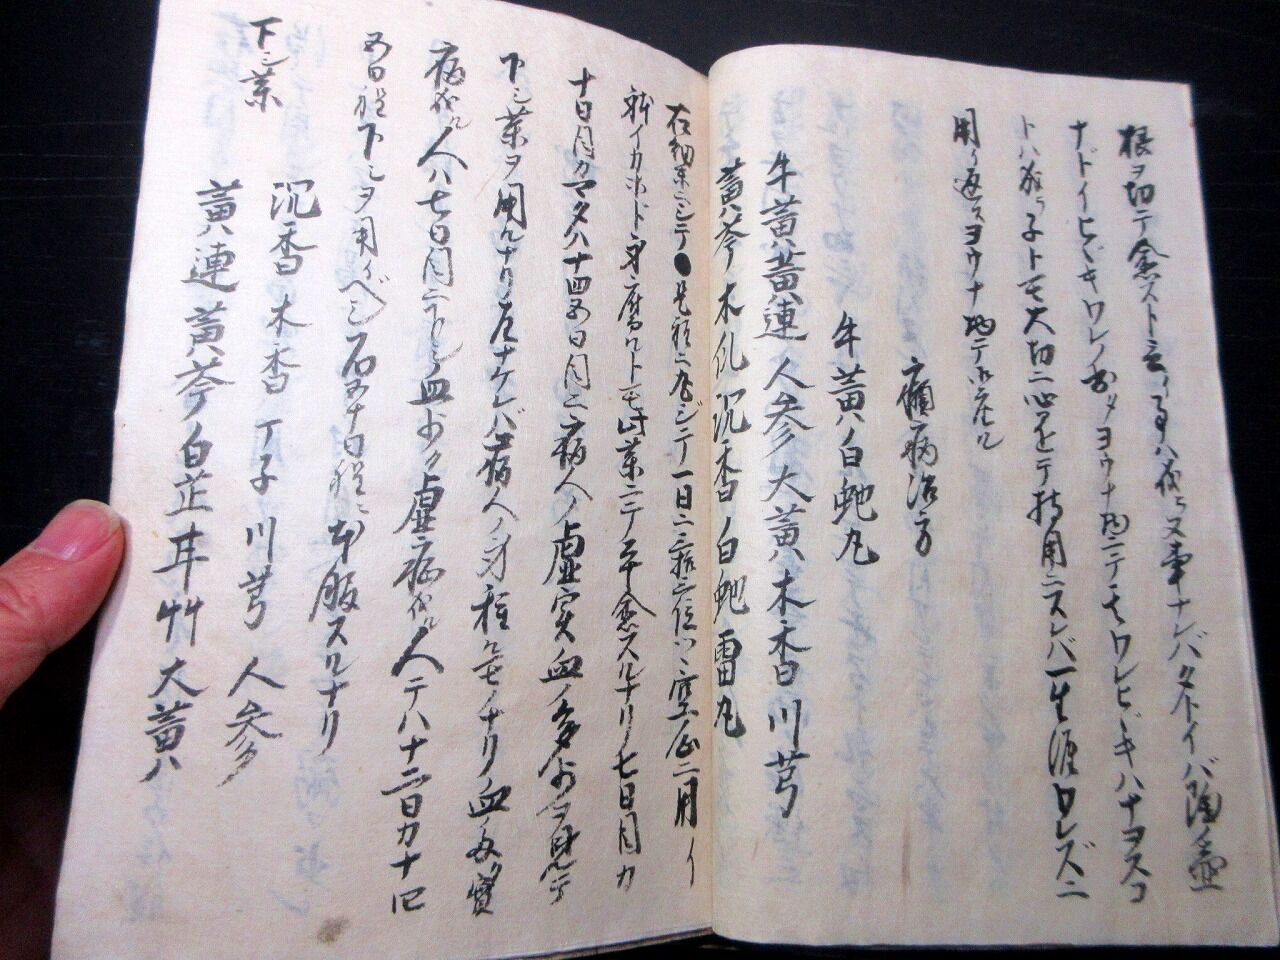 根ヲ切テ愈スト云フ事ハ成ラヌ事ナレバタトイバ陶ノ壷
ナドイヒヾキワレノ出メヨウナ物ニテモワレヒヾキハナヲスコ
トハ成ラ子トモ大切ニ心を付テ持用ニスレバ一生涯ワレズニ
用イ返スヨウナ物テ御座ル
癩病治方
牛黄白虵丸
牛黄黄連人参大黄木香川芎
黄芩木乳沉香白虵雷丸
右細末ニシテ
一日ニ三粒ニ 空心ニ用イ
新イカホド身腐ルトモ此薬ニテ平愈スルナリ七日目カ
十日目カマタハ十四五日目ニ病人ノ虚実血ノ多少ヲ見テ
下シ薬ヲ用ルナリ左ナケレバ病人ノ身 ナリ血多ク實
病成ル人ハ七日目ニ下シ血少ク虚病成ル人テハ十二日カ十四
五日程下シヲ用イベシ右五十日程ニ 服スルナリ
下シ薬
沉香木香丁子川芎人参
黄連黄芩白芷 大黄